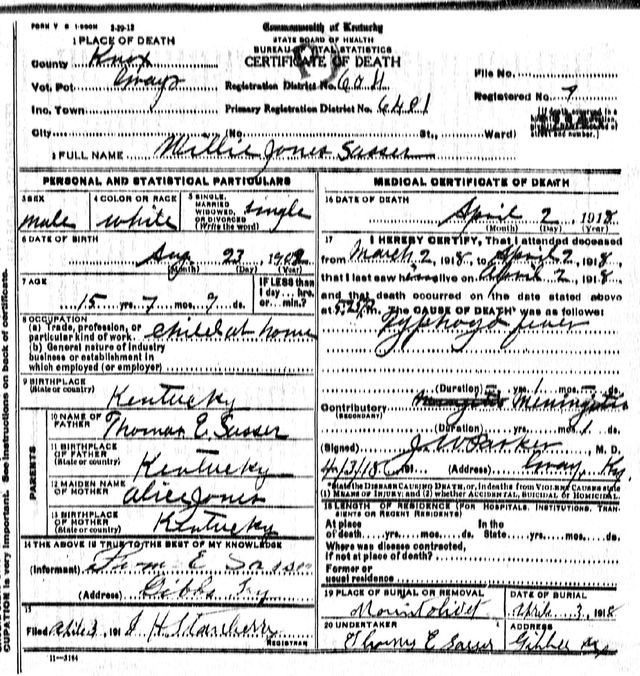 FORM V S 1-500M 3-29-12
Commonwealth of Kentucky
STATE BOARD OF HEALTH
BUREAU VITAL STATISTICS
CERTIFICATE OF DEATH
1 PLACE OF DEATH
County Knox
Vot. Pct
Inc. Town
City (No St., Ward)
Registration District No. 604
Primary Registration District No. 6481
File No.
Registered No. 9
2 FULL NAME Willie Jones Sasser
PERSONAL AND STATISTICAL PARTICULARS
3 SEX
male
4 COLOR OR RACE
white
5 SINGLE, MARRIED WIDOWED, OR DIVORCED (Write the word)
single
6 DATE OF BIRTH
Aug 23, 1902
(Month) (Day) (Year)
7 AGE
15 yrs. 7 mos. 9 ds.
IF LESS than
1 day.... hrs.
or.... min.?
8 OCCUPATION
(a) Trade, profession, or
particular kind of work. child at home
(b) General nature of industry
business or establishment in
which employed (or employer)
9 BIRTHPLACE
(State or country) Kentucky
PARENTS
10 NAME OF FATHER
Thomas E. Sasser
11 BIRTHPLACE OF FATHER
(State or country) Kentucky
12 MAIDEN NAME OF MOTHER
Alice Jones
13 BIRTHPLACE OF MOTHER
(State or country) Kentucky
14 THE ABOVE IS TRUE TO THE BEST OF MY KNOWLEDGE
(Informant) E Sasser
(Address) Gibbs Ky
15
Filed April 3, 191 8 J H Stansberry
REGISTRAR
11-3184
MEDICAL CERTIFICATE OF DEATH
16 DATE OF DEATH
April 2, 1918
(Month) (Day) (Year)
17 I HEREBY CERTIFY, That I attended deceased
from March 2, 1918, to April 2, 1918,
that I last saw him alive on April 2, 1918,
and that death occurred on the date stated above
at m. The CAUSE OF DEATH* was as follows:
Typhoid fever
(Duration) yrs. 1 mos. ds.
Contributory Meningitis
(SECONDARY)
(Duration) yrs. mos. ds.
(Signed) J. W. Parker, M. D.
4/3/18 191 (Address) Ky.
*State the DISEASE CAUSING DEATH, or, in deaths from VIOLENT CAUSES state
(1) MEANS OF INJURY; and (2) whether ACCIDENTAL, SUICIDAL or HOMICIDAL.
18 LENGTH OF RESIDENCE (FOR HOSPITALS, INSTITUTIONS, TRANSIENTS OR RECENT RESIDENTS)
At place of death yrs. mos. ds. In the State yrs. mos. ds.
Where was disease contracted,
if not at place of death?
Former or
usual residence
19 PLACE OF BURIAL OR REMOVAL
Mount olivet
DATE OF BURIAL
April 3, 1918
20 UNDERTAKER
Thomas E Sasser
ADDRESS
Gibbs Ky
CUPATION is very important. See instructions on back of certificate.